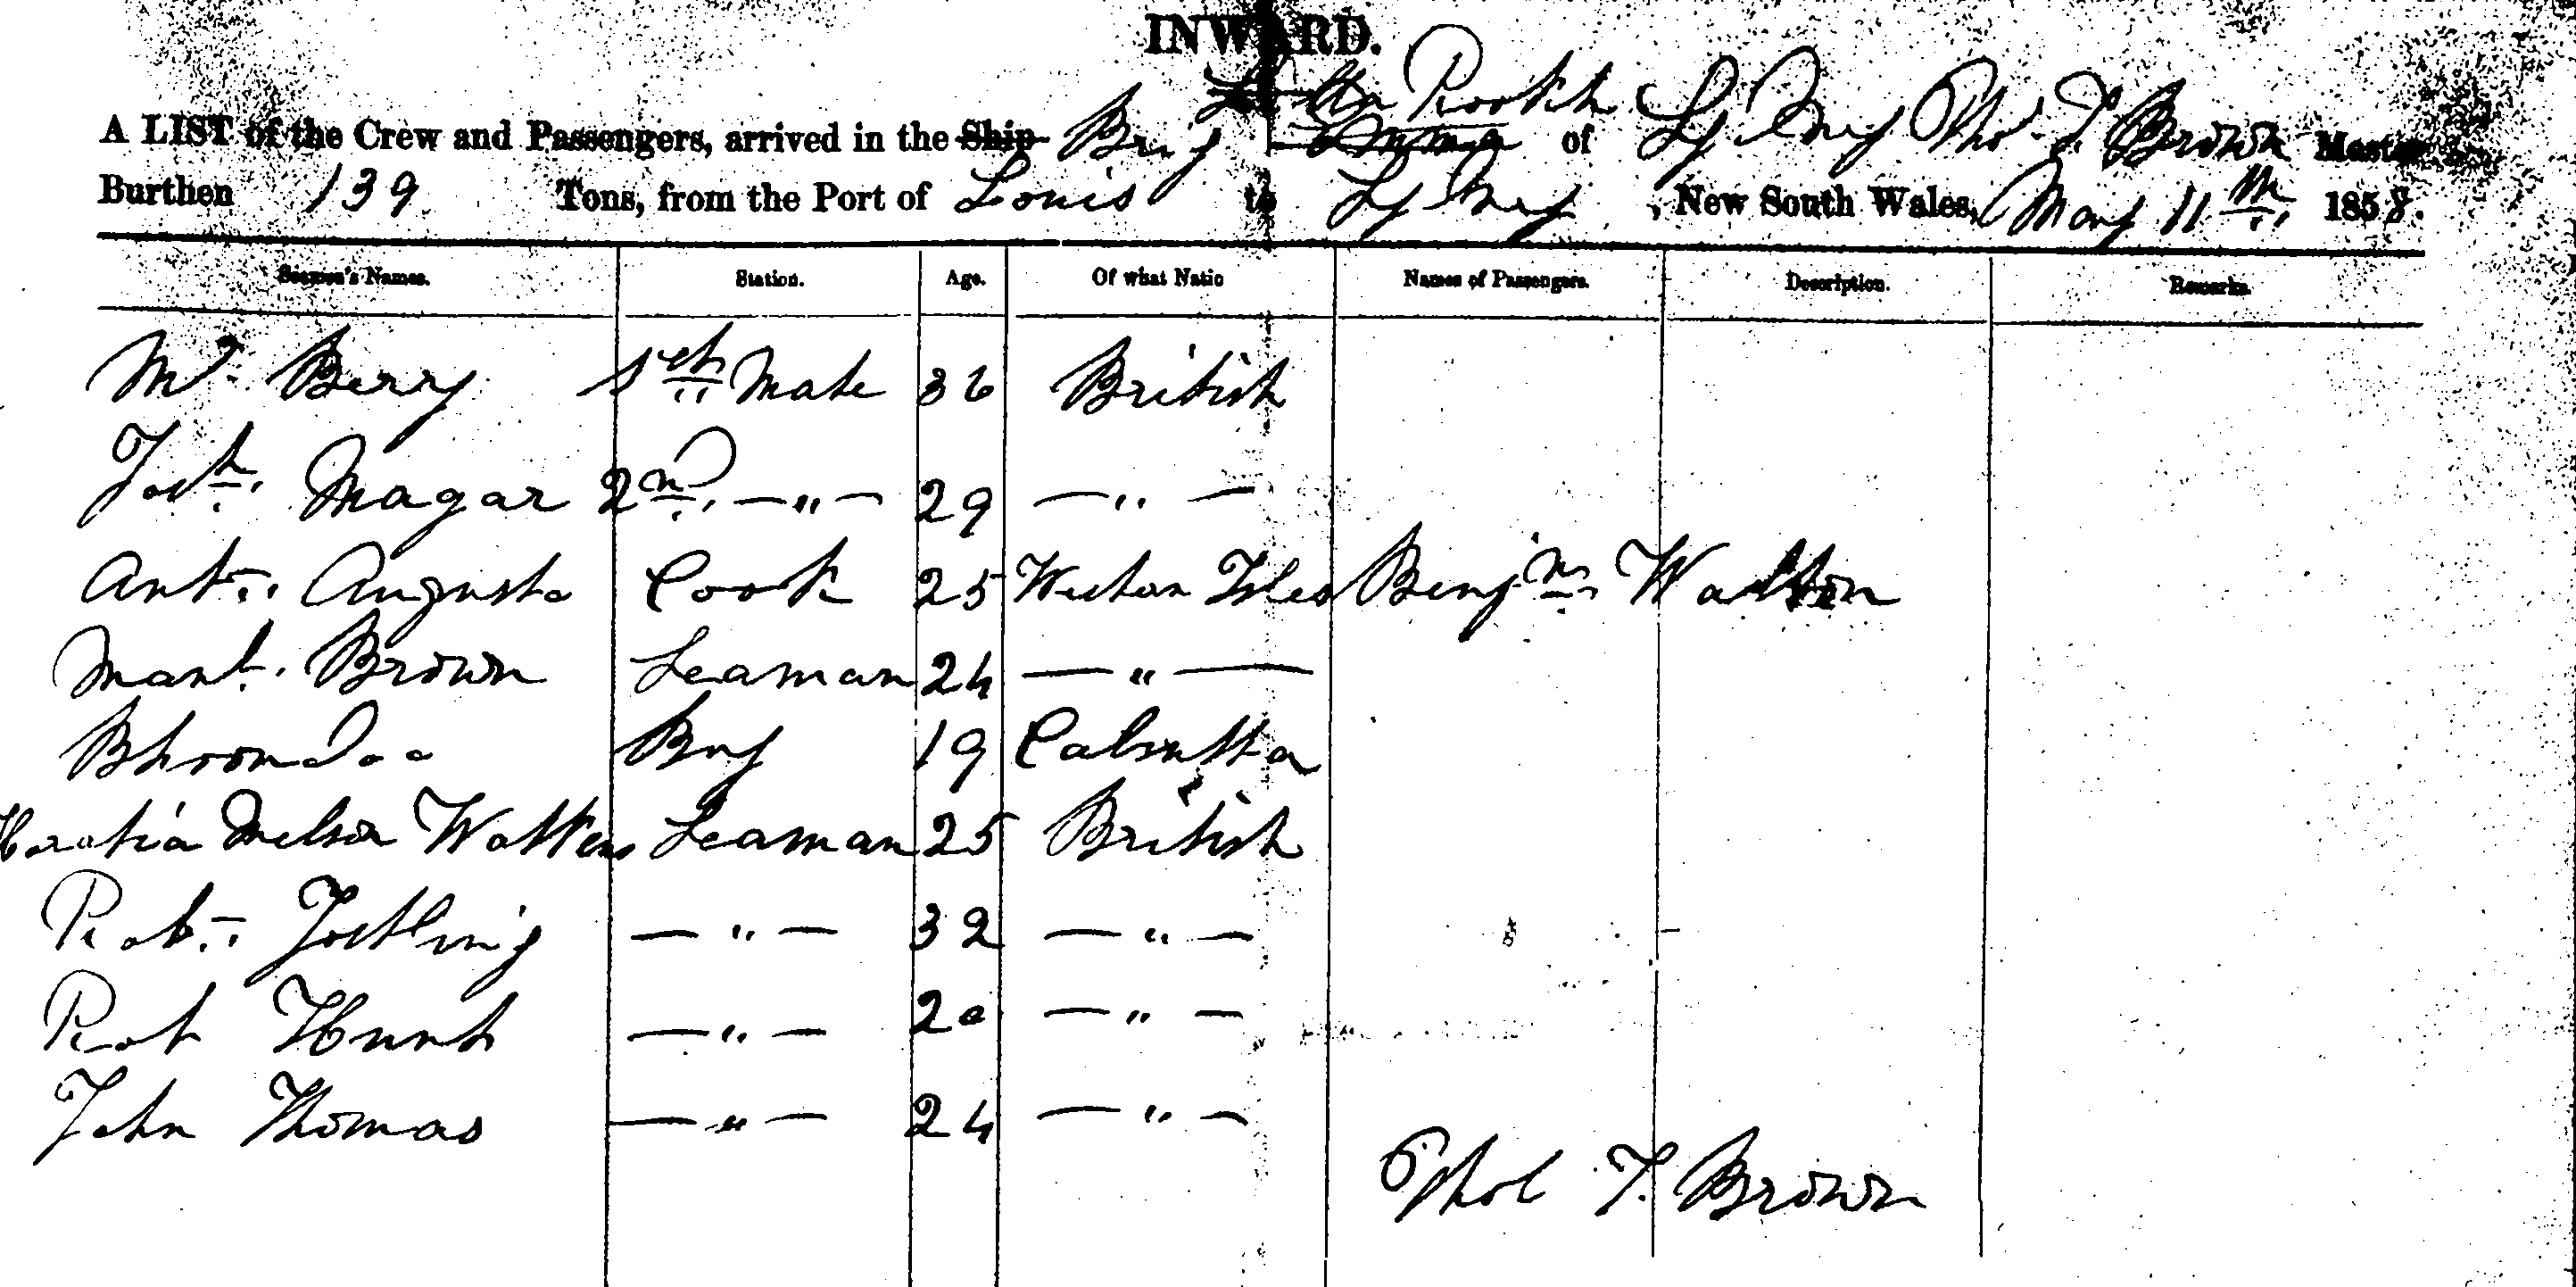 INWARD.
Rookh
A LIST of the Crew and Passengers, arrived in the Ship Brig Emma of Sydney Thos. T. Brown Master
Burthen 139 Tons, from the Port of Louis to Sydney, New South Wales, May 11th 1858.
Seamen's Names. Station. Age. Of what Natio Names of Passengers. Description. Remarks.
Mr. Berry Mate 36 British
Magar 2nd. —"— 29 —"—
Ant. Augusta Cook 25 Western Isles Benjn. Walton
Manl. Brown Seaman 24 —"—
Boy 19 Calcutta
Horatia Nelson Watkens Seaman 25 British
Robt. Jostling —"— 32 —"—
Robt Hunt —"— 20 —"—
John Thomas —"— 24 —"—
Thos T. Brown